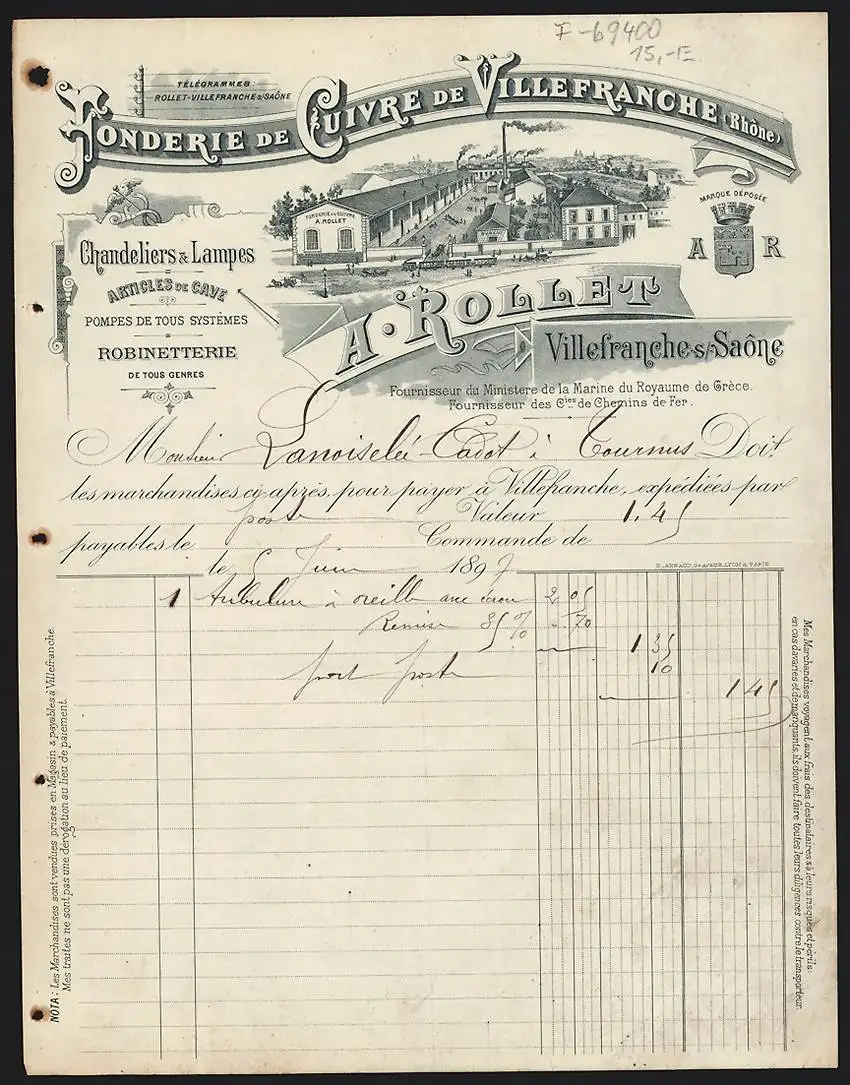 F-69400
15,-E
TÉLÉGRAMMES:
ROLLET-VILLEFRANCHE S/SAÔNE
FONDERIE DE CUIVRE DE VILLEFRANCHE (Rhône)
MARQUE DÉPOSÉE
A R
FONDERIE DE CUIVRE
A. ROLLET
Chandeliers & Lampes
ARTICLES DE CAVE
POMPES DE TOUS SYSTÈMES
ROBINETTERIE
DE TOUS GENRES
A. ROLLET
Villefranche s/ Saône
Fournisseur du Ministere de la Marine du Royaume de Grèce.
Fournisseur des Cies de Chemins de Fer.
Monsieur Lanoiselée-Cadot à Tournus Doit
les marchandises ci-après, pour payer à Villefranche, expédiées par
poste Valeur 1.45
payables le Commande de
le 5 Juin 1897
1 à oreille avec écrou 2 05
Remise 35 % " 70
1 35
port poste 10
1 45
NOTA: Les Marchandises sont vendues prises en Magasin & payables à Villefranche.
Mes traites ne sont pas une dérogation au lieu de paiement.
Mes Marchandises voyagent aux frais des destinataires & à leurs risques et périls:
en cas d'avaries et de manquants, ils doivent faire toutes leurs diligences contre le transporteur.